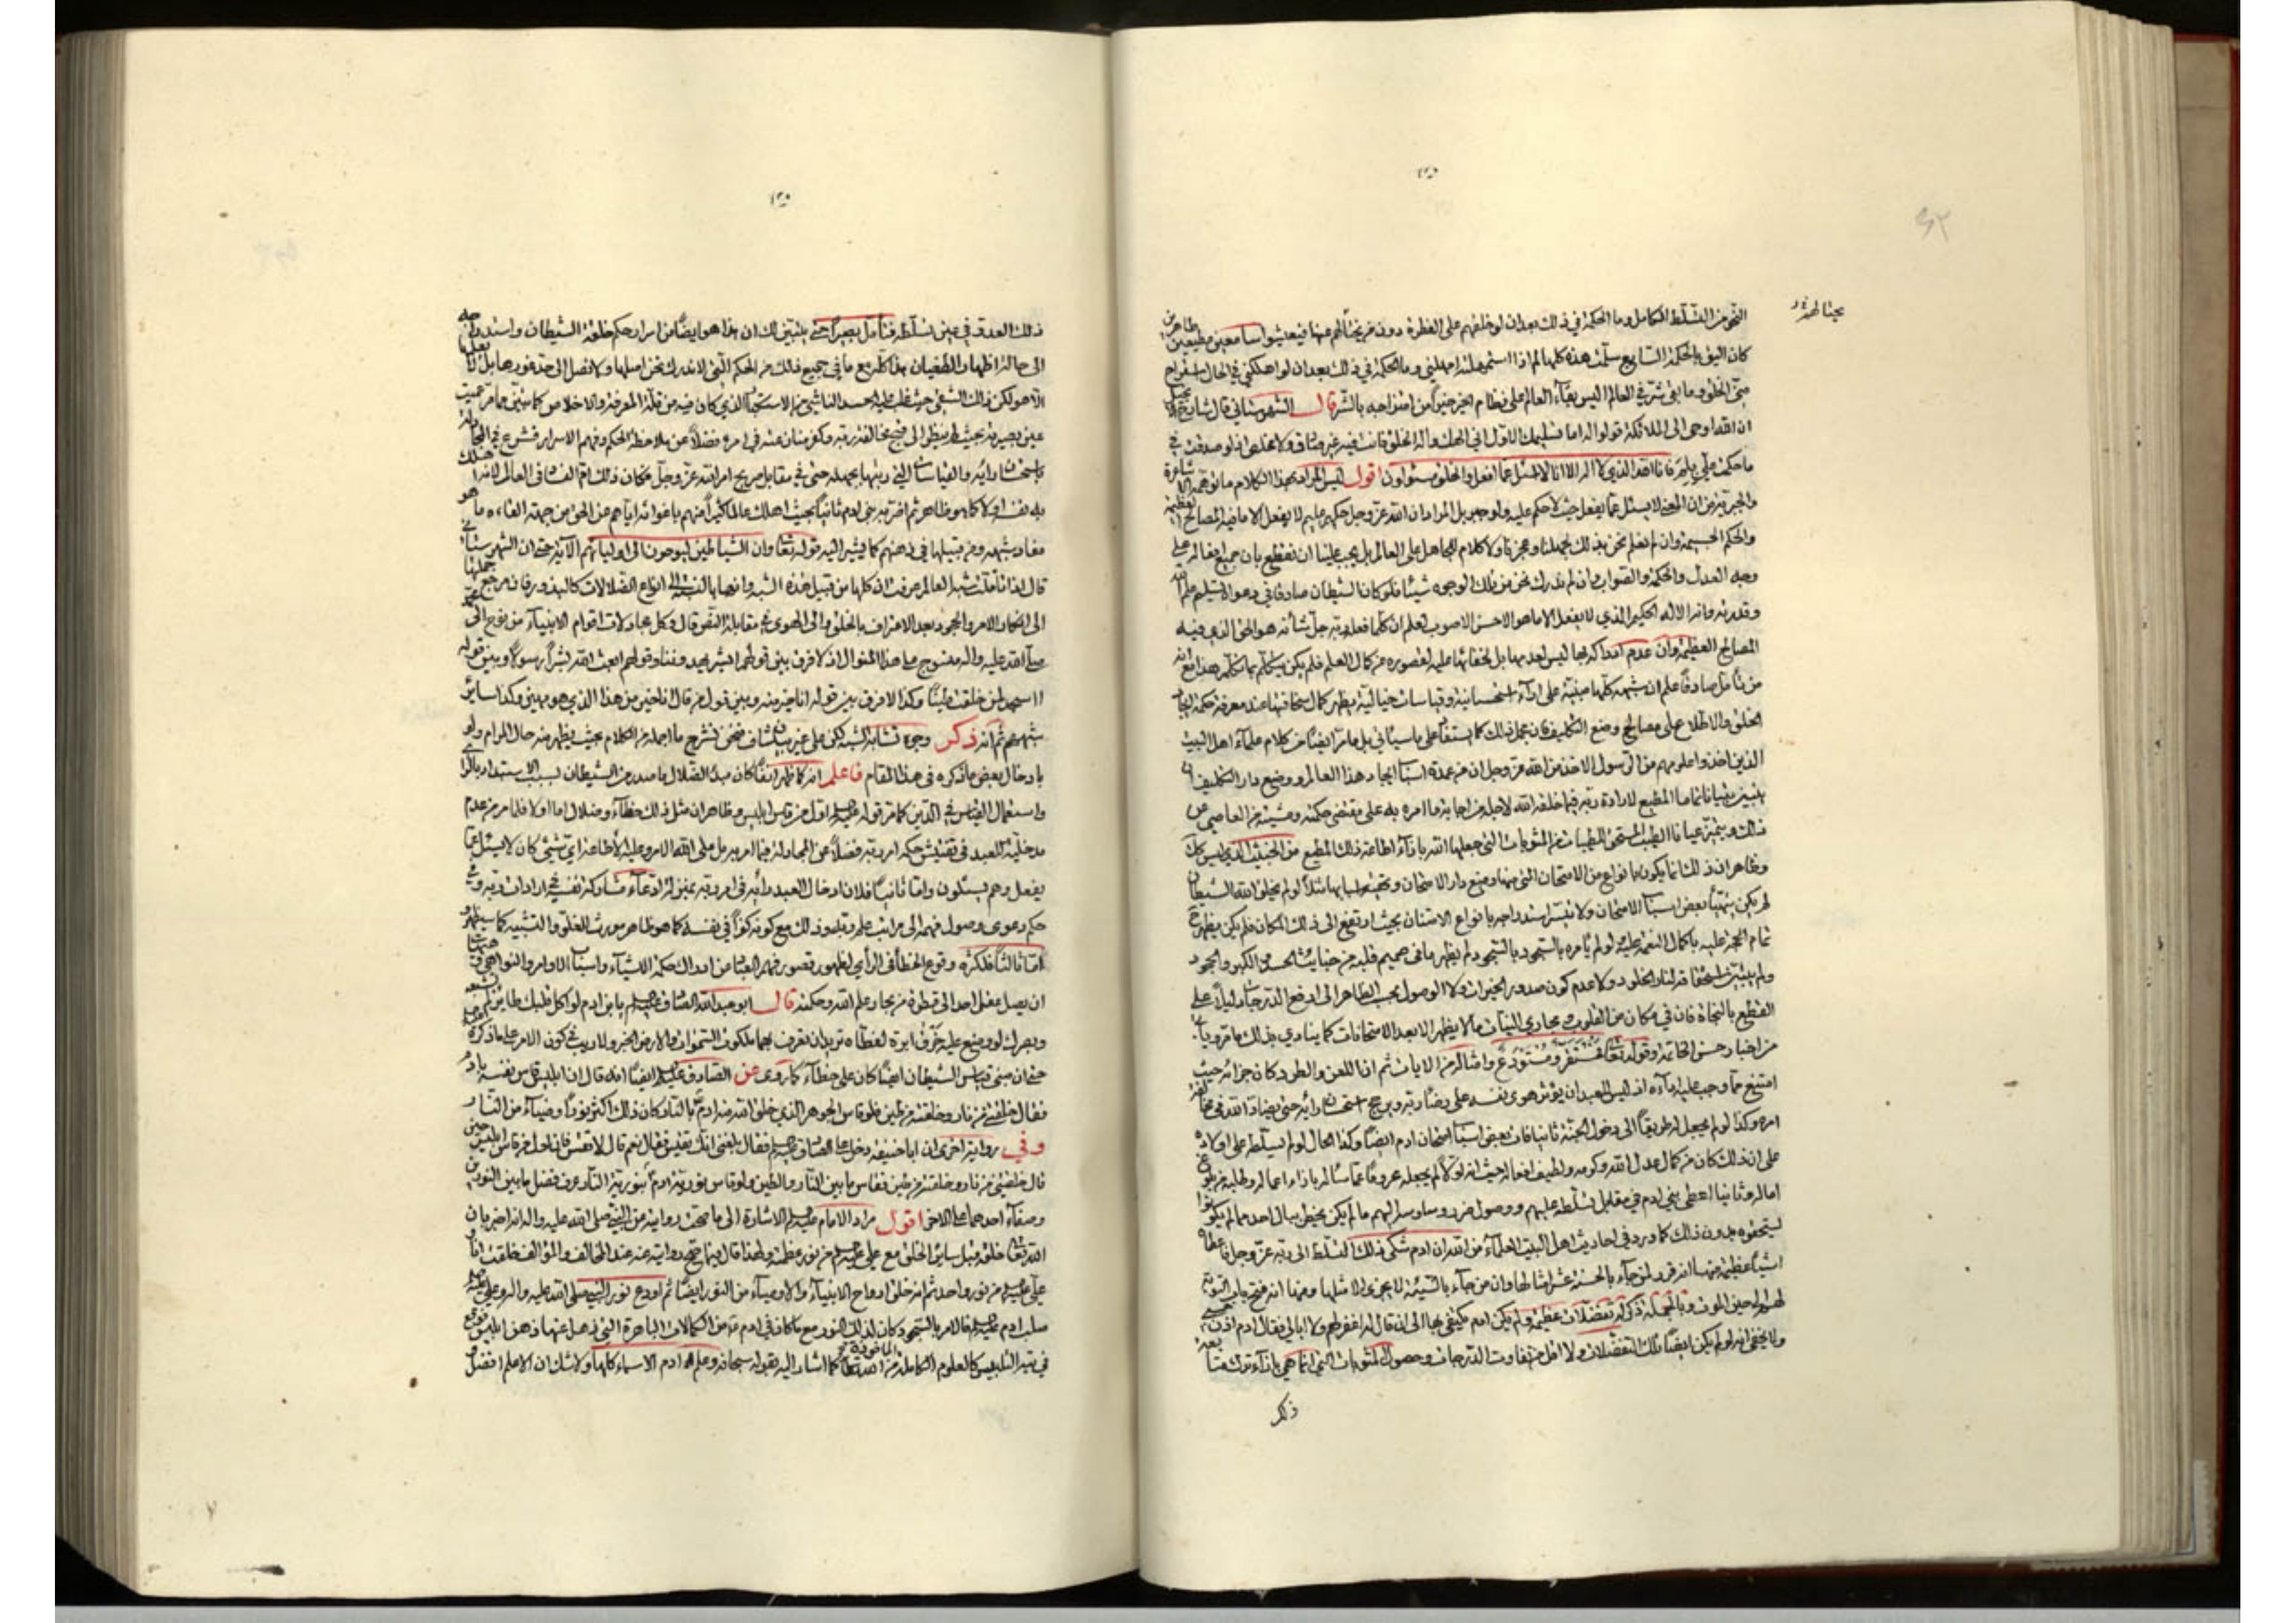 النحو من التسلط الكامل وما الحكمة في ذلك بعد ان لو خلقهم على الفطرة دون من يحتالهم عنها فيعيشوا سامعين مطيعين طاهرين
كان اليق بالحكمة السابع سلمت هذه كلها لم اذا استمهلته امهلني وما الحكمة في ذلك بعد ان لو اهلكني في الحال استراح
الخلق وما بقي شر في العالم اليس بقاء العالم على نظام الخير خيراً من امتزاجه بالشر قال الشهرستاني قال شارح الانجيل
ان الله اوحى الى الملائكة قولوا له اما تسليمك الاول اني الهك واله الخلق فانت فيه غير صادق ولا مخلص اذ لو صدقت في
ما حكمت علي بلم فانا الله الذي لا اله الا انا لا اسئل عما افعل والخلق مسئولون اقول ليس المراد بهذا الكلام ما توهمه الاشاعرة
والجبرية من ان المعنى لا يسئل عما يفعل حيث لا حكم عليه ولو جهر بل المراد ان الله عز وجل حكيم عليم لا يفعل الا ما فيه المصالح العظيمة
والحكم الجسيمة وان لم نعلم نحن بذلك لجهلنا وعجزنا ولا كلام للجاهل على العالم بل يجب علينا ان نقطع بان جميع افعاله على
وجه العدل والحكمة والصواب وان لم ندرك نحن من تلك الوجوه شيئا فلو كان الشيطان صادقا في دعوا التسليم علم الله
وقدرته وانه الاله الحكيم الذي لا يفعل الا ما هو الاحسن الاصوب لعلم ان كلما فعله ربه جل شأنه هو الحق الذي فيه
المصالح العظيمة وان عدم ادراكه لها ليس لعدمها بل لخفائها عليه لقصوره عن كمال العلم فلم يكن يتكلم بما تكلم هذا مع انه
من تأمل صادقاً علم ان شبهه كلها مبنية على اراء استحسانية وقياسات خيالية يظهر كمال سخافتها عند معرفة حكمة ايجاد
الخلق والاطلاع على مصالح وضع التكليف فان مجمل ذلك كما يستفاد على ما سيأتي بل ما مر ايضا من كلام علماء اهل البيت
الذين اخذوا علومهم من الرسول الاخذ من الله عز وجل ان من عمدة اسباب ايجاد هذا العالم ووضع دار التكليف ان
يتبين بيانا تاما المطيع لارادة ربه فيما خلقه الله لاجله من اجابة ما امره به على مقتضى حكمته ومشيته من العاصي عن
ذلك ويتميز عيانا الطيب المستحق للطيبات من المثوبات التي جعلها الله بازاء اطاعة ذلك المطيع من الخبيث الذي ليس كذلك
وظاهر ان ذلك انما يكون بانواع من الامتحان التي منها وضع دار الامتحان وتهيئة اسبابها مثلا لو لم يخلق الله الشيطان
لم يكن يتهيأ بعض اسباب الامتحان ولا تيسر استدراجه بانواع الامتنان بحيث ارتفع الى ذلك المكان فلم يكن يظهر ح
تمام الحجة عليه باكمال النعمة عليه لو لم يأمره بالسجود بالسجود لم يظهر ما في صميم قلبه من خبايث الحسد والكبر والجحود
ولم يتبين استحقاقه لنار الخلود ولا عدم كون صدور الخيرات ولا الوصول بحسب الظاهر الى ارفع الدرجات دليلا على
القطع بالنجاة فان في مكان من القلوب ومجاري النيات مالا يظهر الا بعد الامتحانات كما ينادي بذلك ما مر ويأتي
من اخبار حسن الخاتمة وقوله تعالى فمستقر ومستودع وامثاله من الايات ثم اذا اللعن والطرد كان جزائه حيث
امتنع عما وجب عليه اداءه اذ ليس للعبد ان يؤثر هوى نفسه على رضا ربه ويرجح استحسان رأيه حتى يضاد الله في مخالفة
امره وكذا لو لم يجعل له طريقا الى دخول الجنة ثانيا فات بعض اسباب امتحان ادم ايضا وكذا الحال لو لم يسلط على اولاده
على ان ذلك كان من كمال عدل الله وكرمه ولطيف افعاله حيث انه اولا لم يجعله محروما عما سئاله بازاء اعماله وطلبه من بلوغ
اماله وثانيا اعطى بني ادم في مقابل تسلطه عليهم ووصول ضرر وساوسه اليهم ما لم يكن يخطر ببال احد مما لم يكونوا
ليستحقوه بدون ذلك كما ورد في احاديث اهل البيت العلماء من الله ان ادم شكى ذلك التسلط الى ربه عز وجل فاعطاه
اشياء عظيمة منها انه قرر لمن جاء بالحسنة عشر امثالها وان من جاء بالسيئة لا يجزى الا مثلها ومنها انه فتح باب التوبة
لهم الى حين الموت وبالجملة ذكر له تفضلات عظيمة ولم يكن ادم يكتفي بها الى ان قال له اغفر لهم ولا ابالي فقال ادم اذن حسبي
ولا يخفى انه لو لم يكن ايضا تلك التفضلات ولا اقل من تفاوت الدرجات وحصول المثوبات التي انما هي بازاء ترك متابعة
ذلك
ذلك العدو في عين تسلطه فتأمل بصيراً حتى يتبين لك ان هذا هو ايضا من اسرار حكم خلقة الشيطان واستدراجه
الى حالة اظهار الطغيان هذا كله مع ما في جميع ذلك من الحكم التي لا ندرك نحن اصلها ولا نصل الى حد غورها بل لا يعلمها
الا هو لكن ذلك الشقي حيث غلب عليه الحسد الناشي من الاستكبار الذي كان فيه من قلة المعرفة والاخلاص كما سيتبين ومما مر عميت
عين بصيرته بحيث لم ينظر الى قبح مخالفة ربه وكفر منان عنه في امره فضلا عن ملاحظة الحكم وفهم الاسرار فشرع في المجادلة
باستحسان رأيه والقياسات التي رتبها بجهله حتى في مقابل صريح امر الله عز وجل فكان ذلك ام الفساد في العالم لانه اهلك
به نفسه اولا كما هو ظاهر ثم اضر به بني ادم ثانيا بحيث اهلك عالما كثيرا منهم باغوائه اياهم عن الحق من جهة القاءه ما هو
مفاد شبهه ومن قبيلها في ذهنهم كما يشير اليه قوله تعالى وان الشياطين ليوحون الى اوليائهم الآية حتى ان الشهرستاني
قال اذا تأملت شبه العالم عرفت ان كلها من قبيل هذه الشبه وانها بالنسبة الى انواع الضلالات كالبذور فان مرجع جملتها
الى انكار الامر والجحود بعد الاعتراف بالخلق والى الهوى في مقابلة النص قال وكل مجادلات اقوام الانبياء من نوح الى محمد
صلى الله عليه واله منسوج على هذا المنوال اذ لا فرق بين قولهم ابشر يهدوننا وقولهم ابعث الله بشرا رسولا وبين قوله
ااسجد لمن خلقت طينا وكذا لا فرق بين قوله انا خير منه وبين قول من قال انا خير من هذا الذي هو مهين وكذا ساير
شبههم ثم انه ذكر وجوه تشابه الشبه لكن على غير بيان شاف فنحن نشرح ما اجمله من الكلام بحيث يظهر منه حال المرام ولو
بادخال بعض ما ذكره في هذا المقام فاعلم انه كما ظهر انفا كان مبدء الضلال ما صدر من الشيطان بسبب الاستبداد بالرأي
واستعمال القياس في الدين كما مر قوله عليه السلام اول من قاس ابليس وظاهر ان مثل ذلك خطاء وضلال اما اولا فلما مر من عدم
مدخلية للعبد في تفتيش حكمة امر ربه فضلا عن المجادلة فيما امر به بل على الله الامر وعليه الاطاعة اي شيء كان لا يسئل عما
يفعل وهم يسئلون واما ثانيا فلان ادخال العبد رأيه في امر ربه بمنزلة ادعاء مشاركة نفسه في ارادات ربه وفي
حكم دعوى وصول فهمه الى مراتب علم ربه وذلك مع كونه كفرا في نفسه كما هو ظاهر مورث للغلو والتشبيه كما سيظهر و
اما ثالثا فلكثرة وقوع الخطأ في الرأي لظهور قصور فهم العباد عن ادراك حكمة الاشياء واسباب الاوامر والنواهي وهيهات
ان يصل عقل احد الى قطرة من بحار علم الله وحكمته قال ابو عبدالله الصادق عليه السلم يا بن ادم لو اكل قلبك طاير لم يشبعه
وبصرك لو وضع عليه خرق ابرة لغطاه تريد ان تعرف بهما ملكوت السموات والارض الخبر ولا ريب في كون الامر على ما ذكره
حتى ان مبنى قياس الشيطان ايضا كان على خطاء كما روى عن الصادق عليه السلم ايضا انه قال ان ابليس قاس نفسه بادم
فقال خلقتني من نار وخلقته من طين فلو قاس الجوهر الذي خلق الله منه ادم بالنار كان ذلك اكثر نورا وضياء من النار
وفي رواية اخرى ان ابا حنيفة دخل على الصادق عليه السلم فقال بلغني انك تقيس فقال نعم قال لا تقس فان اول من قاس ابليس حين
قال خلقتني من نار وخلقته من طين فقاس ما بين النار والطين ولو قاس نورية ادم بنورية النار عرف فضل ما بين النورين
وصفاء احدهما على الاخر اقول مراد الامام عليه السلم الاشارة الى ما صحت روايته عن النبي صلى الله عليه واله انه اخبر بان
الله تعالى خلقه قبل ساير الخلق مع علي عليه السلم من نور عظمته ولهذا قال فيما صح روايته عنه عند المخالف والمؤالف خلقت انا و
علي عليه السلم من نور واحد ثم انه خلق ارواح الانبياء والاوصياء من النور ايضا ثم اودع نور النبي صلى الله عليه واله ونور علي عليه السلم
صلب ادم عليه السلم فالامر بالسجود كان لذلك النور مع ما كان في ادم عه من الكمالات الباهرة التي ذهل عنها وذهن ابليس فوقع
في تيه التلبيس كالعلوم الكاملة الماخوذة من الله تعالى كما اشار اليه بقوله سبحانه وعلم ادم الاسماء كلها ولا شك ان الاعلم افضل و